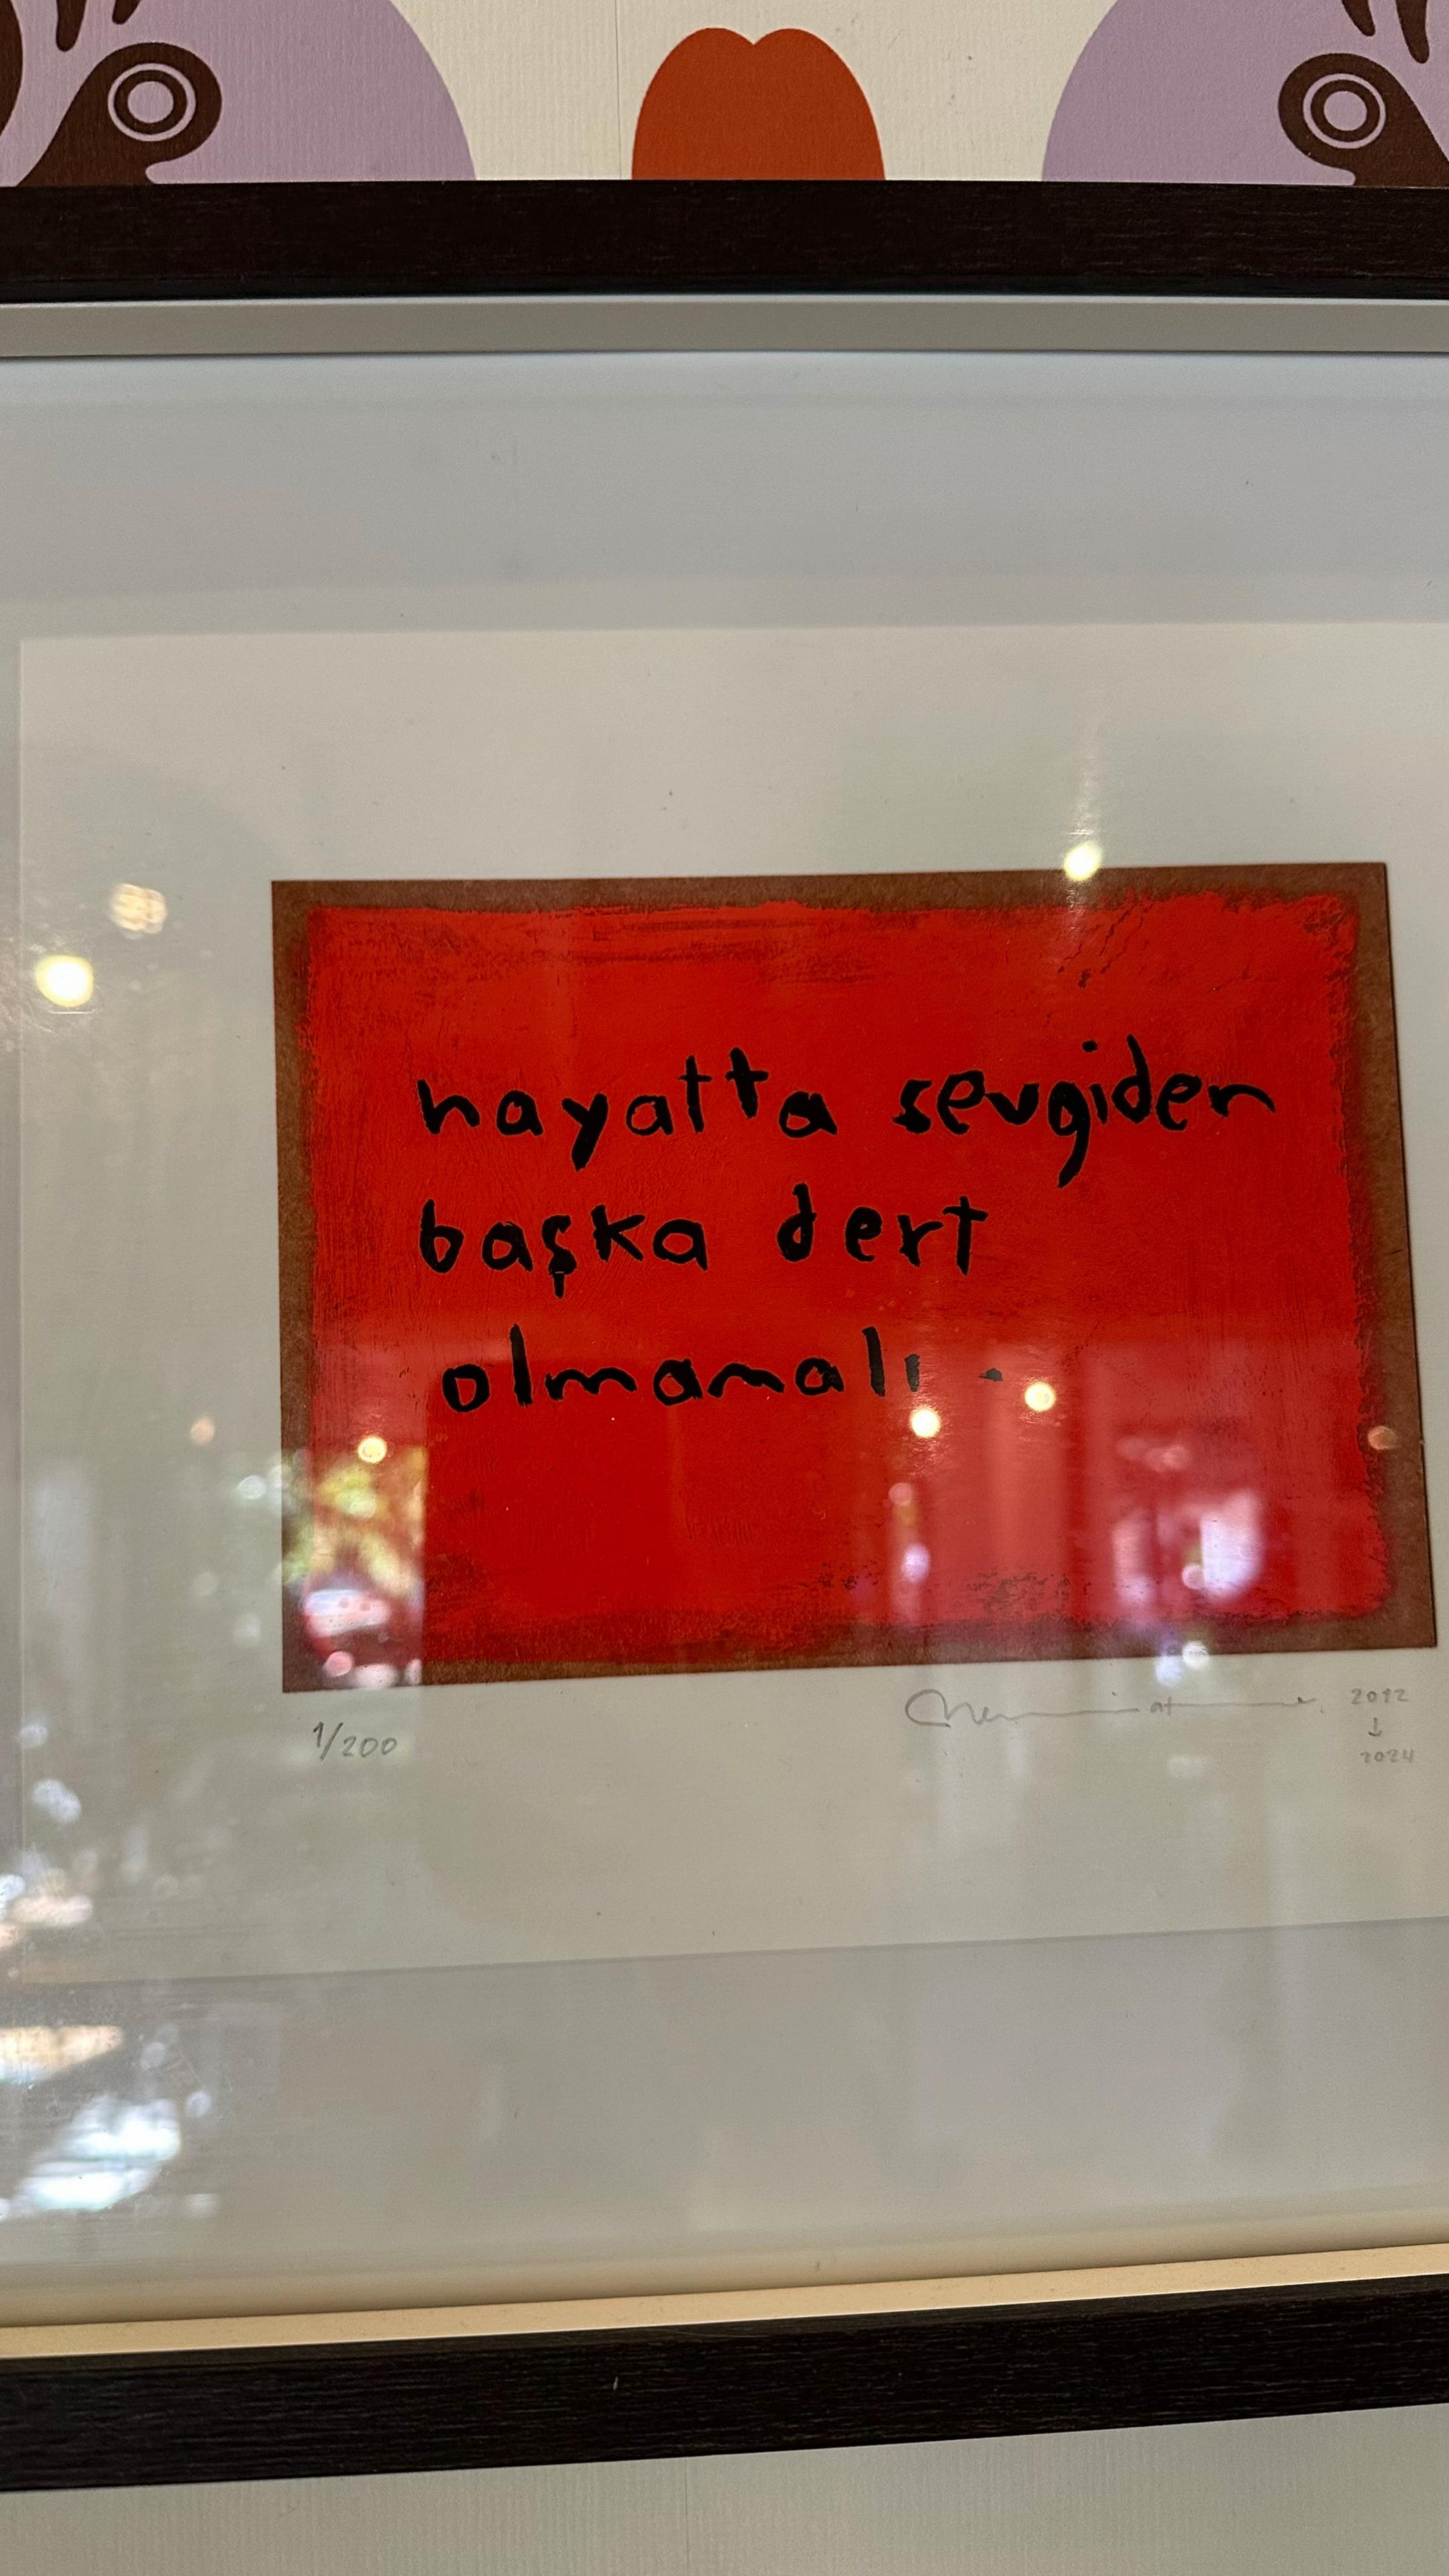 hayatta sevgiden
başka dert
olmamalı.
1/200
2012
↓
2024